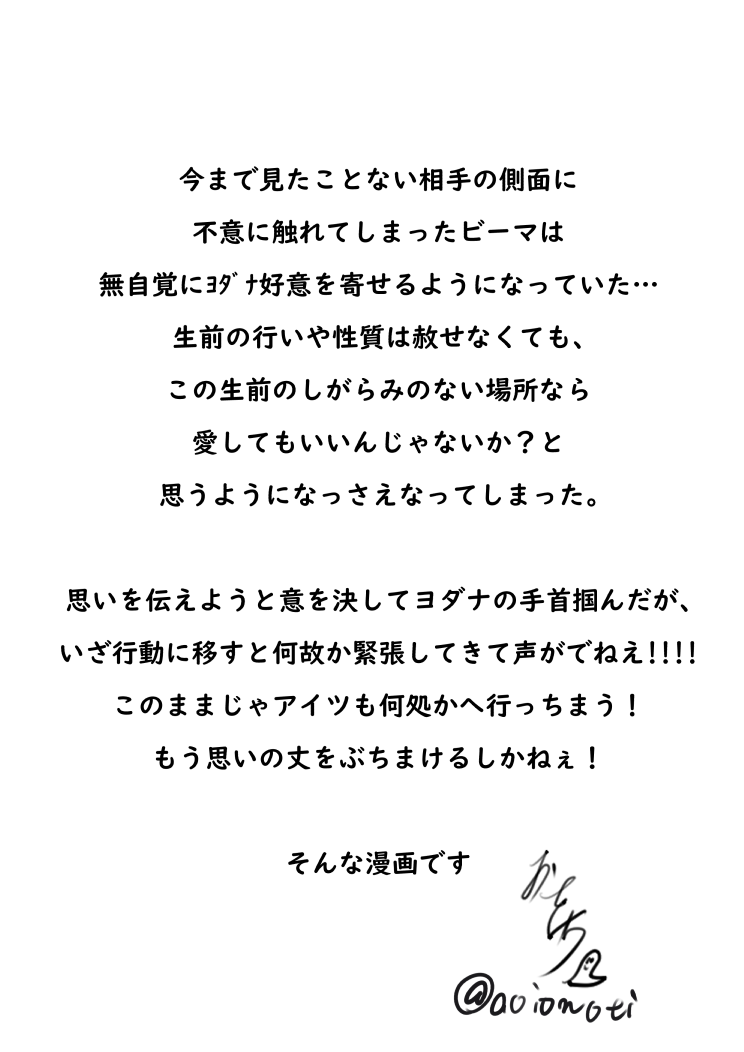 今まで見たことない相手の側面に
不意に触れてしまったビーマは
無自覚にﾖﾀﾞﾅ好意を寄せるようになっていた…
生前の行いや性質は赦せなくても、
この生前のしがらみのない場所なら
愛してもいいんじゃないか？と
思うようになっさえなってしまった。
思いを伝えようと意を決してヨダナの手首掴んだが、
いざ行動に移すと何故か緊張してきて声がでねえ!!!!
このままじゃアイツも何処かへ行っちまう！
もう思いの丈をぶちまけるしかねぇ！
そんな漫画です
@aoionoti